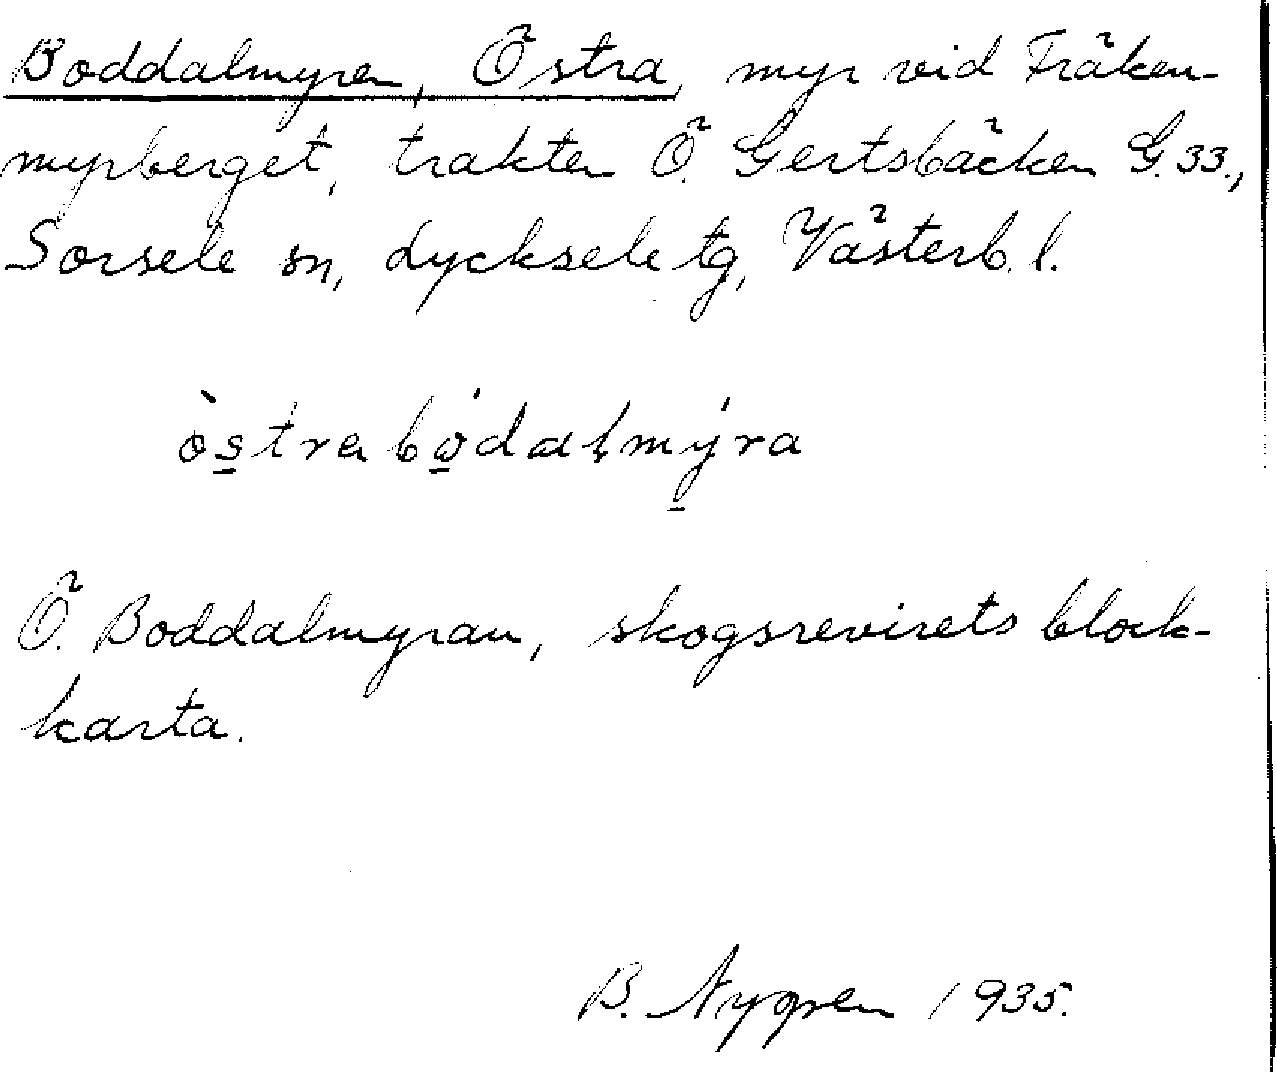 Boddalmyren, Östra, myr vid Fräken-
myrberget, trakten Ö. Gertsbäcken G.33.,
Sorsele sn, Lycksele tg, Västerb. l.
òstra bódalmýra
Ö. Boddalmyran, skogsrevirets block-
karta.
B. Nygren 1935.